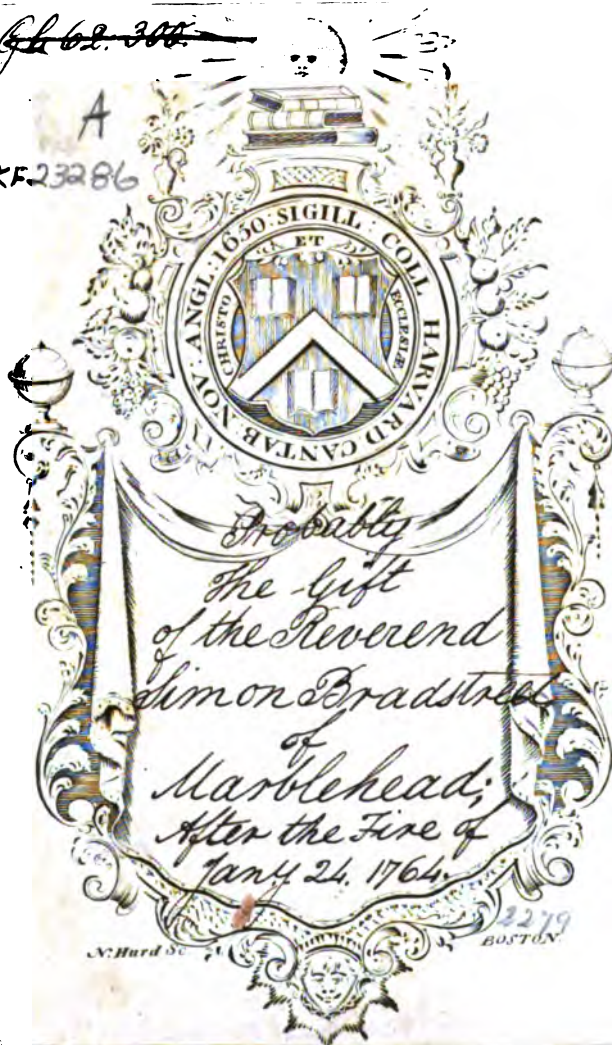 Gh 62.300.
A
KF 23286
SIGILL : COLL HARVARD : CANTAB : NOV : ANGL : 1650 :
CHRISTO ET ECCLESIÆ
Probably
The Gift
of the Reverend
Simon Bradstreet
of
Marblehead;
After the Fire of
Jany 24. 1764.
2279
N. Hurd Sc
BOSTON.